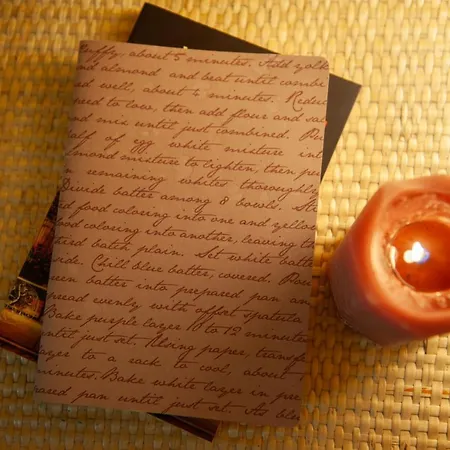 fluffy, about 5 minutes. Add yolk
nd almond and beat until combi
nd well, about 2 minutes. Reduc
peed to low, then add flour and sal
nd mix until just combined.
alf of egg white mixture int
lmond mixture to lighten, then
n remaining whites thoroughl
Divide batter among 8 bowls. St
d food coloring into one and yellow
ood coloring into another, leaving
third batch plain. Set white batte
side. Chill blue batter, covered. Pou
een batter into prepared pan an
pread evenly with offset spatula
Bake purple layer 10 to 12 minutes
until just set. Using paper, transfe
ayer to a rack to cool, about
minutes. Bake white layer in pre
ared pan until just set. As blu